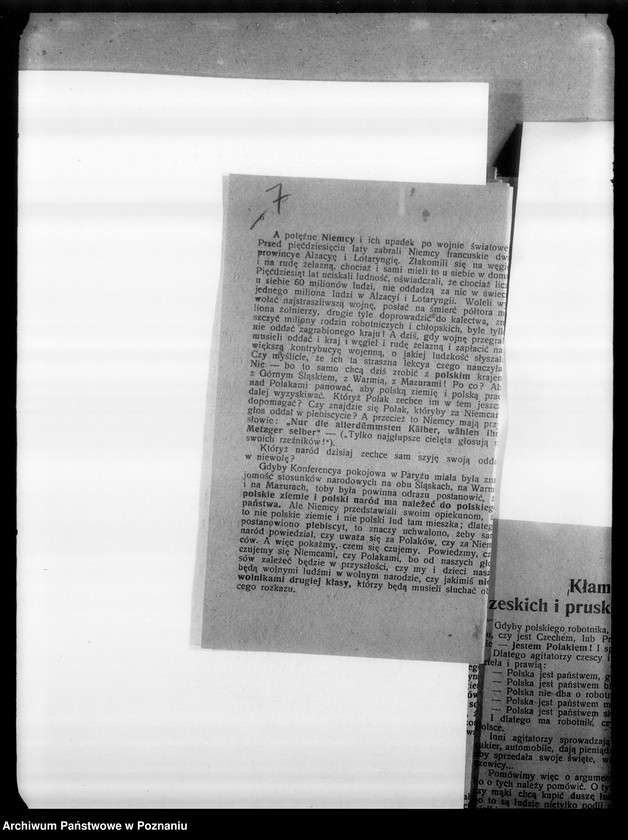 7
A potężne Niemcy i ich upadek po wojnie światowe
Przed pięćdziesięciu laty zabrali Niemcy francuskie dw
prowincye Alzacyę i Lotaryngię. Złakomili się na węgi
i na rudę żelazną, chociaż i sami mieli to u siebie w dom
Pięćdziesiąt lat uciskali ludność, oświadczali, że chociaż licz
u siebie 60 milionów ludzi, nie oddadzą za nic w świec
jednego miliona ludzi w Alzacyi i Lotaryngii. Woleli w
wołać najstraszliwszą wojnę, posłać na śmierć półtora m
liona żołnierzy, drugie tyle doprowadzić do kalectwa, zn
szczyć miliony rodzin robotniczych i chłopskich, byle tylk
nie oddać zagrabionego kraju! A dziś, gdy wojnę przegral
musieli oddać i kraj i węgiel i rudę żelazną i zapłacić na
większą kontrybucyę wojenną, o jakiej ludzkość słyszał
Czy myślicie, że ich ta straszna lekcya czego nauczyła
Nie — bo to samo chcą dziś zrobić z polskim krajem
z Górnym Śląskiem, z Warmią, z Mazurami! Po co? Ab
nad Polakami panować, aby polską ziemię i polską prac
dalej wyzyskiwać. Któryż Polak zechce im w tem jeszcz
dopomagać? Czy znajdzie się Polak, któryby za Niemcam
głos oddał w plebiscycie? A przecież to Niemcy mają przy
słowie: „Nur die allerdümmsten Kälber, wählen ihr
Metzger selber" — („Tylko najgłupsze cielęta głosują n
swoich rzeźników!").
Któryż naród dzisiaj zechce sam szyję swoją odda
w niewolę?
Gdyby Konferencya pokojowa w Paryżu miała była zna
jomość stosunków narodowych na obu Śląskach, na Warm
i na Mazurach, toby była powinna odrazu postanowić, ż
polskie ziemie i polski naród ma należeć do polskieg
państwa. Ale Niemcy przedstawiali swoim opiekunom,
to nie polskie ziemie i nie polski lud tam mieszka; dlateg
postanowiono plebiscyt, to znaczy uchwalono, żeby sam
naród powiedział, czy uważa się za Polaków, czy za Niem
ców. A więc pokażmy, czem się czujemy. Powiedzmy, cz
czujemy się Niemcami, czy Polakami, bo od naszych gło
sów zależeć będzie w przyszłości, czy my i dzieci nasz
będą wolnymi ludźmi w wolnym narodzie, czy jakimiś nie
wolnikami drugiej klasy, którzy będą musieli słuchać ob
cego rozkazu.
Kłam
zeskich i prusk
Gdyby polskiego robotnika,
u, czy jest Czechem, lub Pr
— Jestem Polakiem! I s
Dlatego agitatorzy czescy i
ciela i prawią:
— Polska jest państwem, g
— Polska jest państwem bi
— Polska nie dba o robotn
— Polska jest państwem m
— Polska jest państwem sł
I dlatego ma robotnik, cz
olsce.
Inni agitatorzy sprowadzają
ukier, automobile, dają pieniądz
by sprzedała swoje święte, w
zewicy...
Pomówimy więc o argumen
o o tych należy pomówić. O ty
zy mąki chcą kupić duszę lu
o to są ludzie nietylko podli
Archiwum Państwowe w Poznaniu